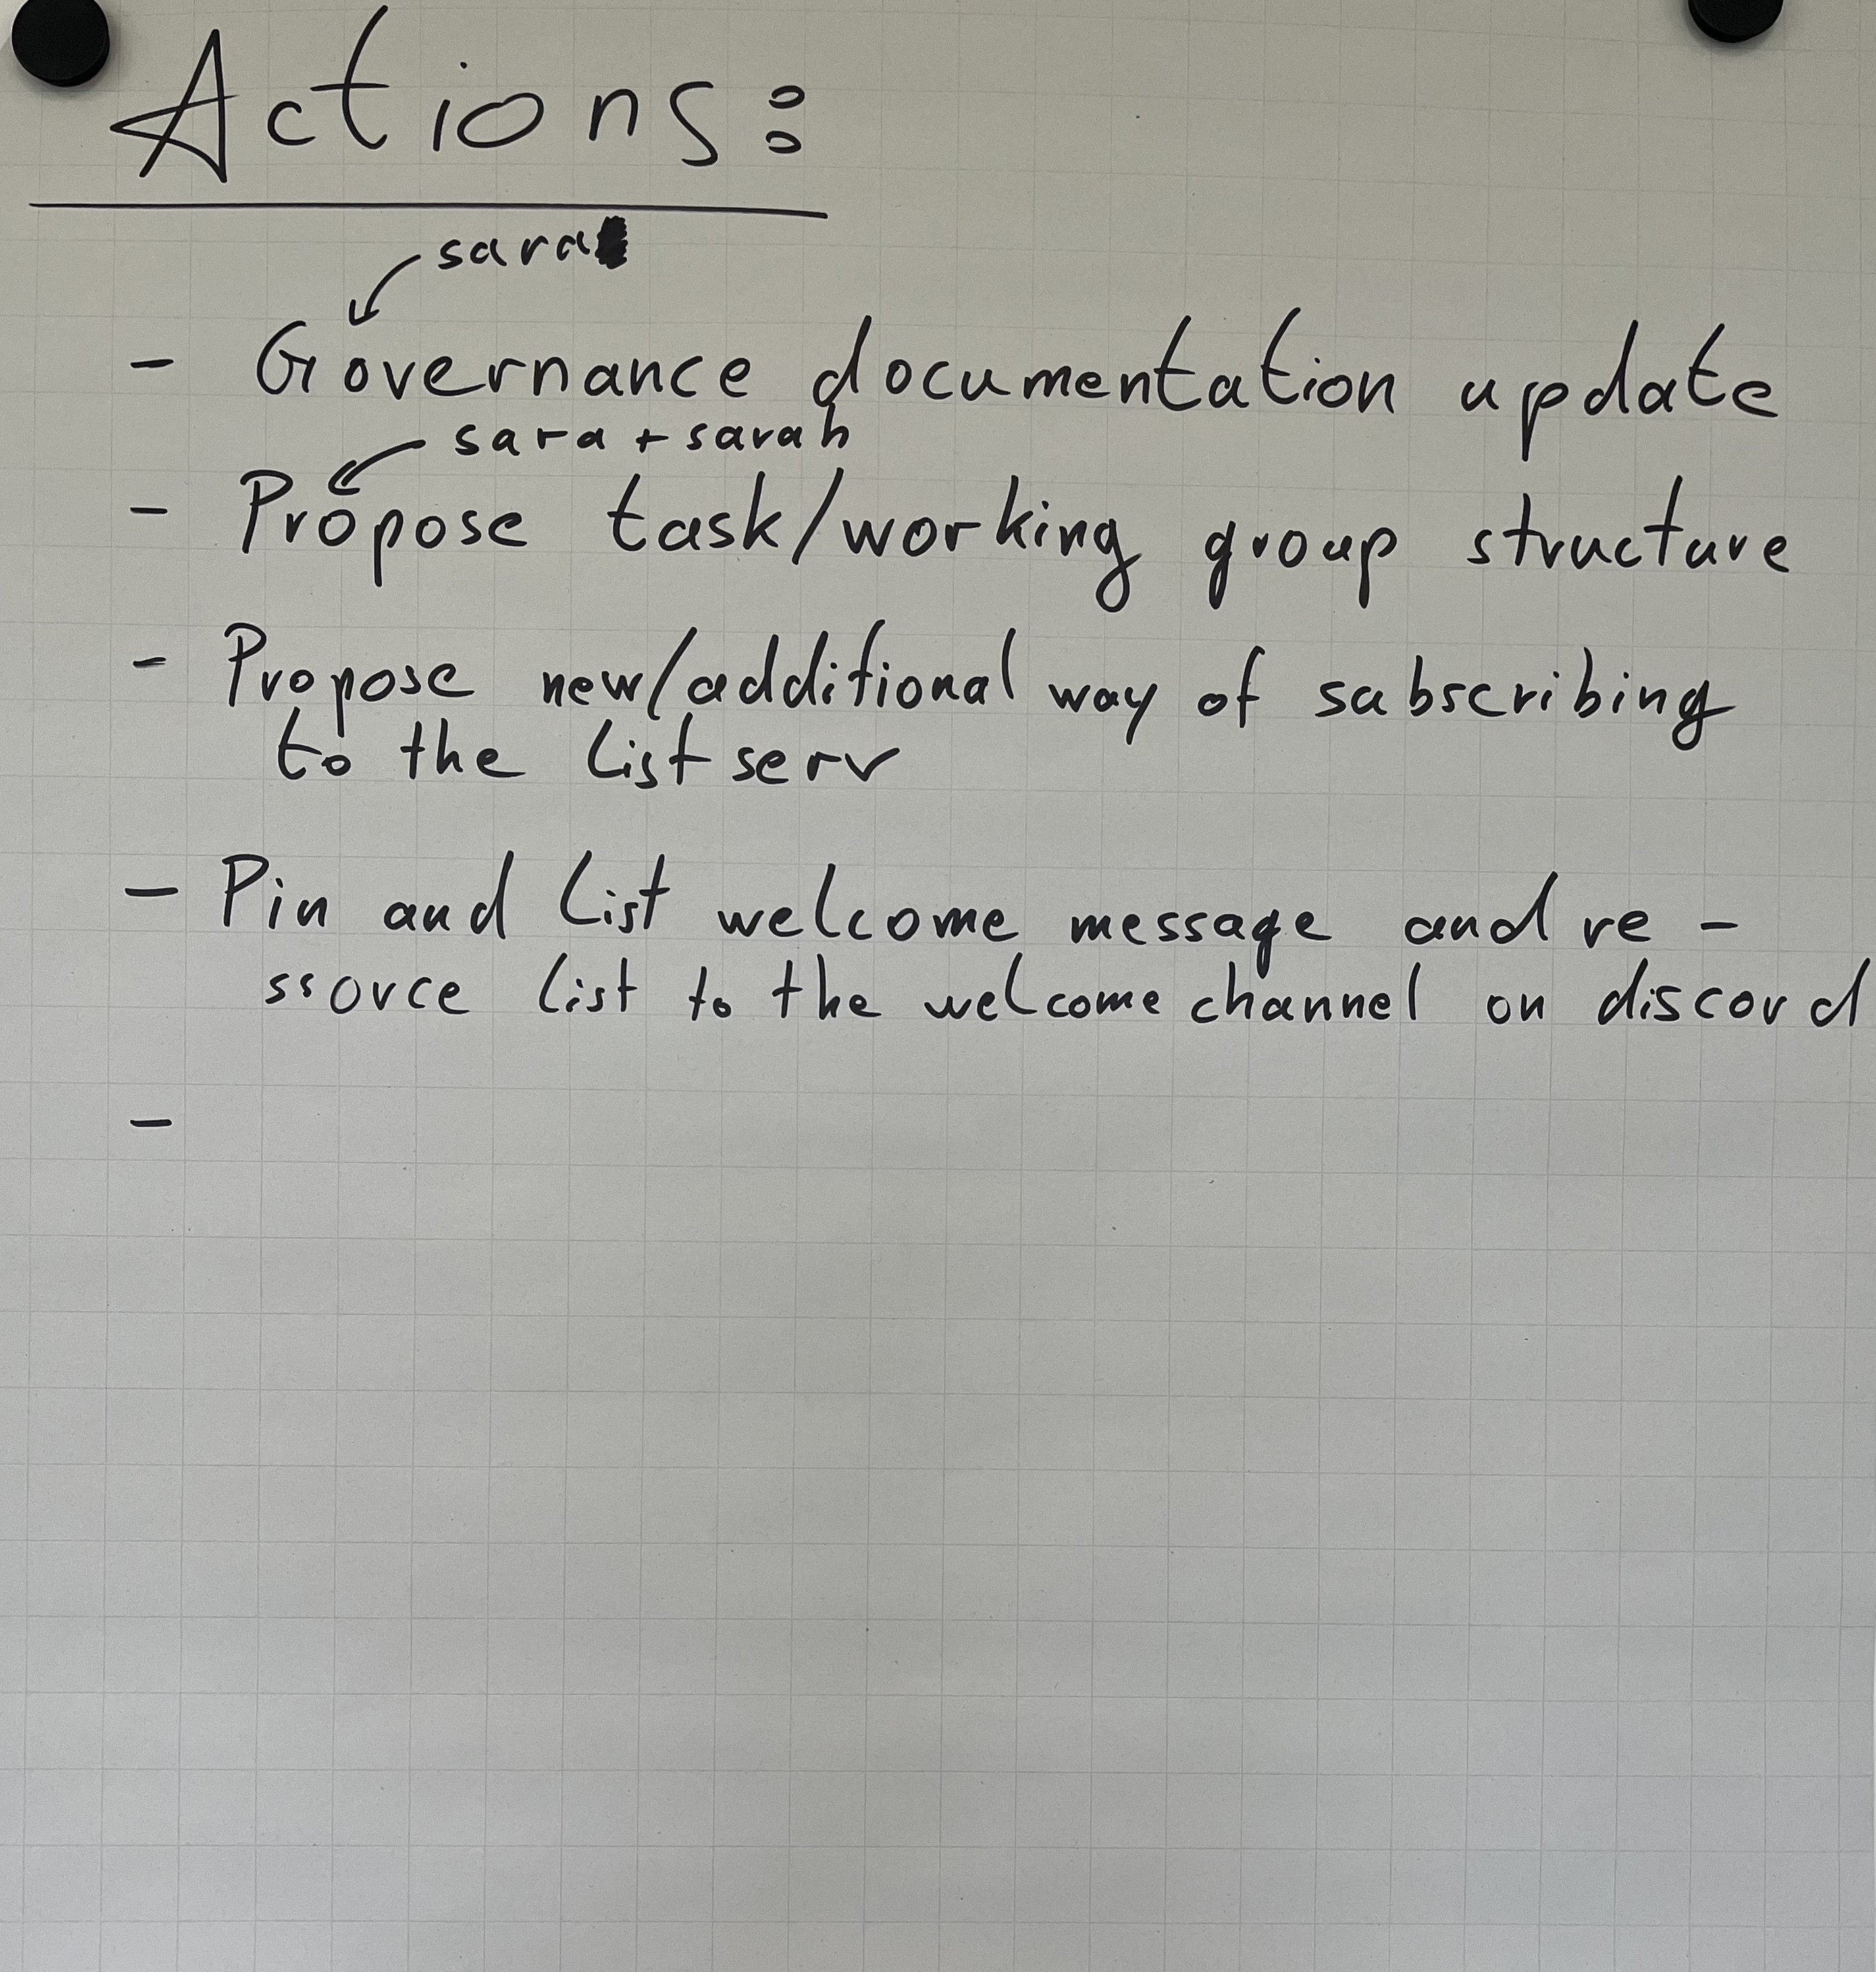 Actions:
sara
- Governance documentation update
sara + sarah
- Propose task/working group structure
- Propose new/additional way of subscribing
to the listserv
- Pin and list welcome message and re -
ssource list to the welcome channel on discord
-